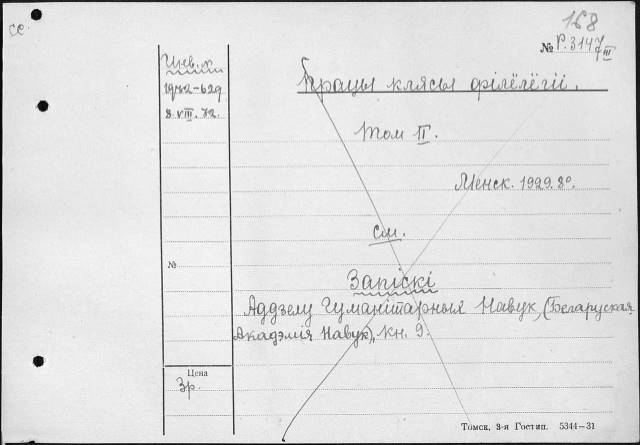 сс
168
№ Р.3147/III
Инв. к
1972-629
8 VIII. 72.
Працы клясы філёлёгіі.
Том II.
Менск. 1929. 8º.
см.
№
Запіскі
Аддзелу Гуманітарных Навук, (Беларуская
Акадэмія Навук), кн. 9.
Цена
3р.
Томск, 3-я Гостип. 5344—31